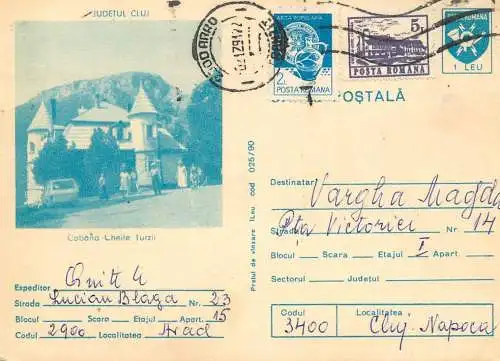 JUDEȚUL CLUJ
ARTA POPULARA
2L
POSTA ROMANA
5L
POSTA ROMANA
ROMANA
1 LEU
POȘTALĂ
Cabana Cheile Turzii
Prețul de vînzare 1Leu. cod 025/90
Expeditor
Strada Lucian Blaga Nr. 23
Blocul Scara Etajul Apart. 15
Codul 2900 Localitatea Arad
Destinatar Vargha Magda
Strada Pta Victoriei Nr. 14
Blocul Scara Etajul I Apart.
Sectorul Județul
Codul Localitatea
3400 Cluj-Napoca